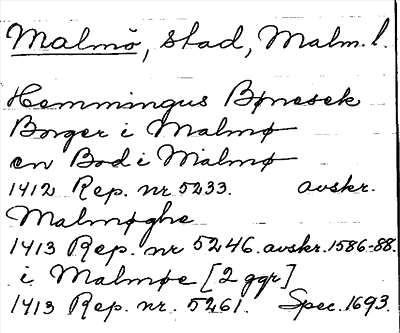 Malmö, stad, Malm. l.
Hemmingus Bønesek
Borger i Malmø
en Bod i Malmø
1412 Rep. nr 5233. avskr.
Malmøghe
1413 Rep. nr 5246. avskr. 1586-88.
i Malmøe [2 ggr]
1413 Rep. nr. 5261. Spec. 1693.